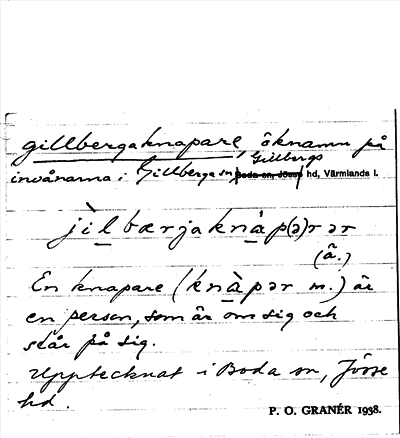 gillbergaknapare, öknamn på
Gillbergs
invånarna i Gillberga sn, Boda sn, Jösse hd, Värmlands l.
jìlbærjaknàp(ə)rər
(ä.)
En knapare (knàpər m.) är
en person, som är om sig och
slår på sig.
Upptecknat i Boda sn, Jösse
hd.
P. O. GRANÉR 1938.